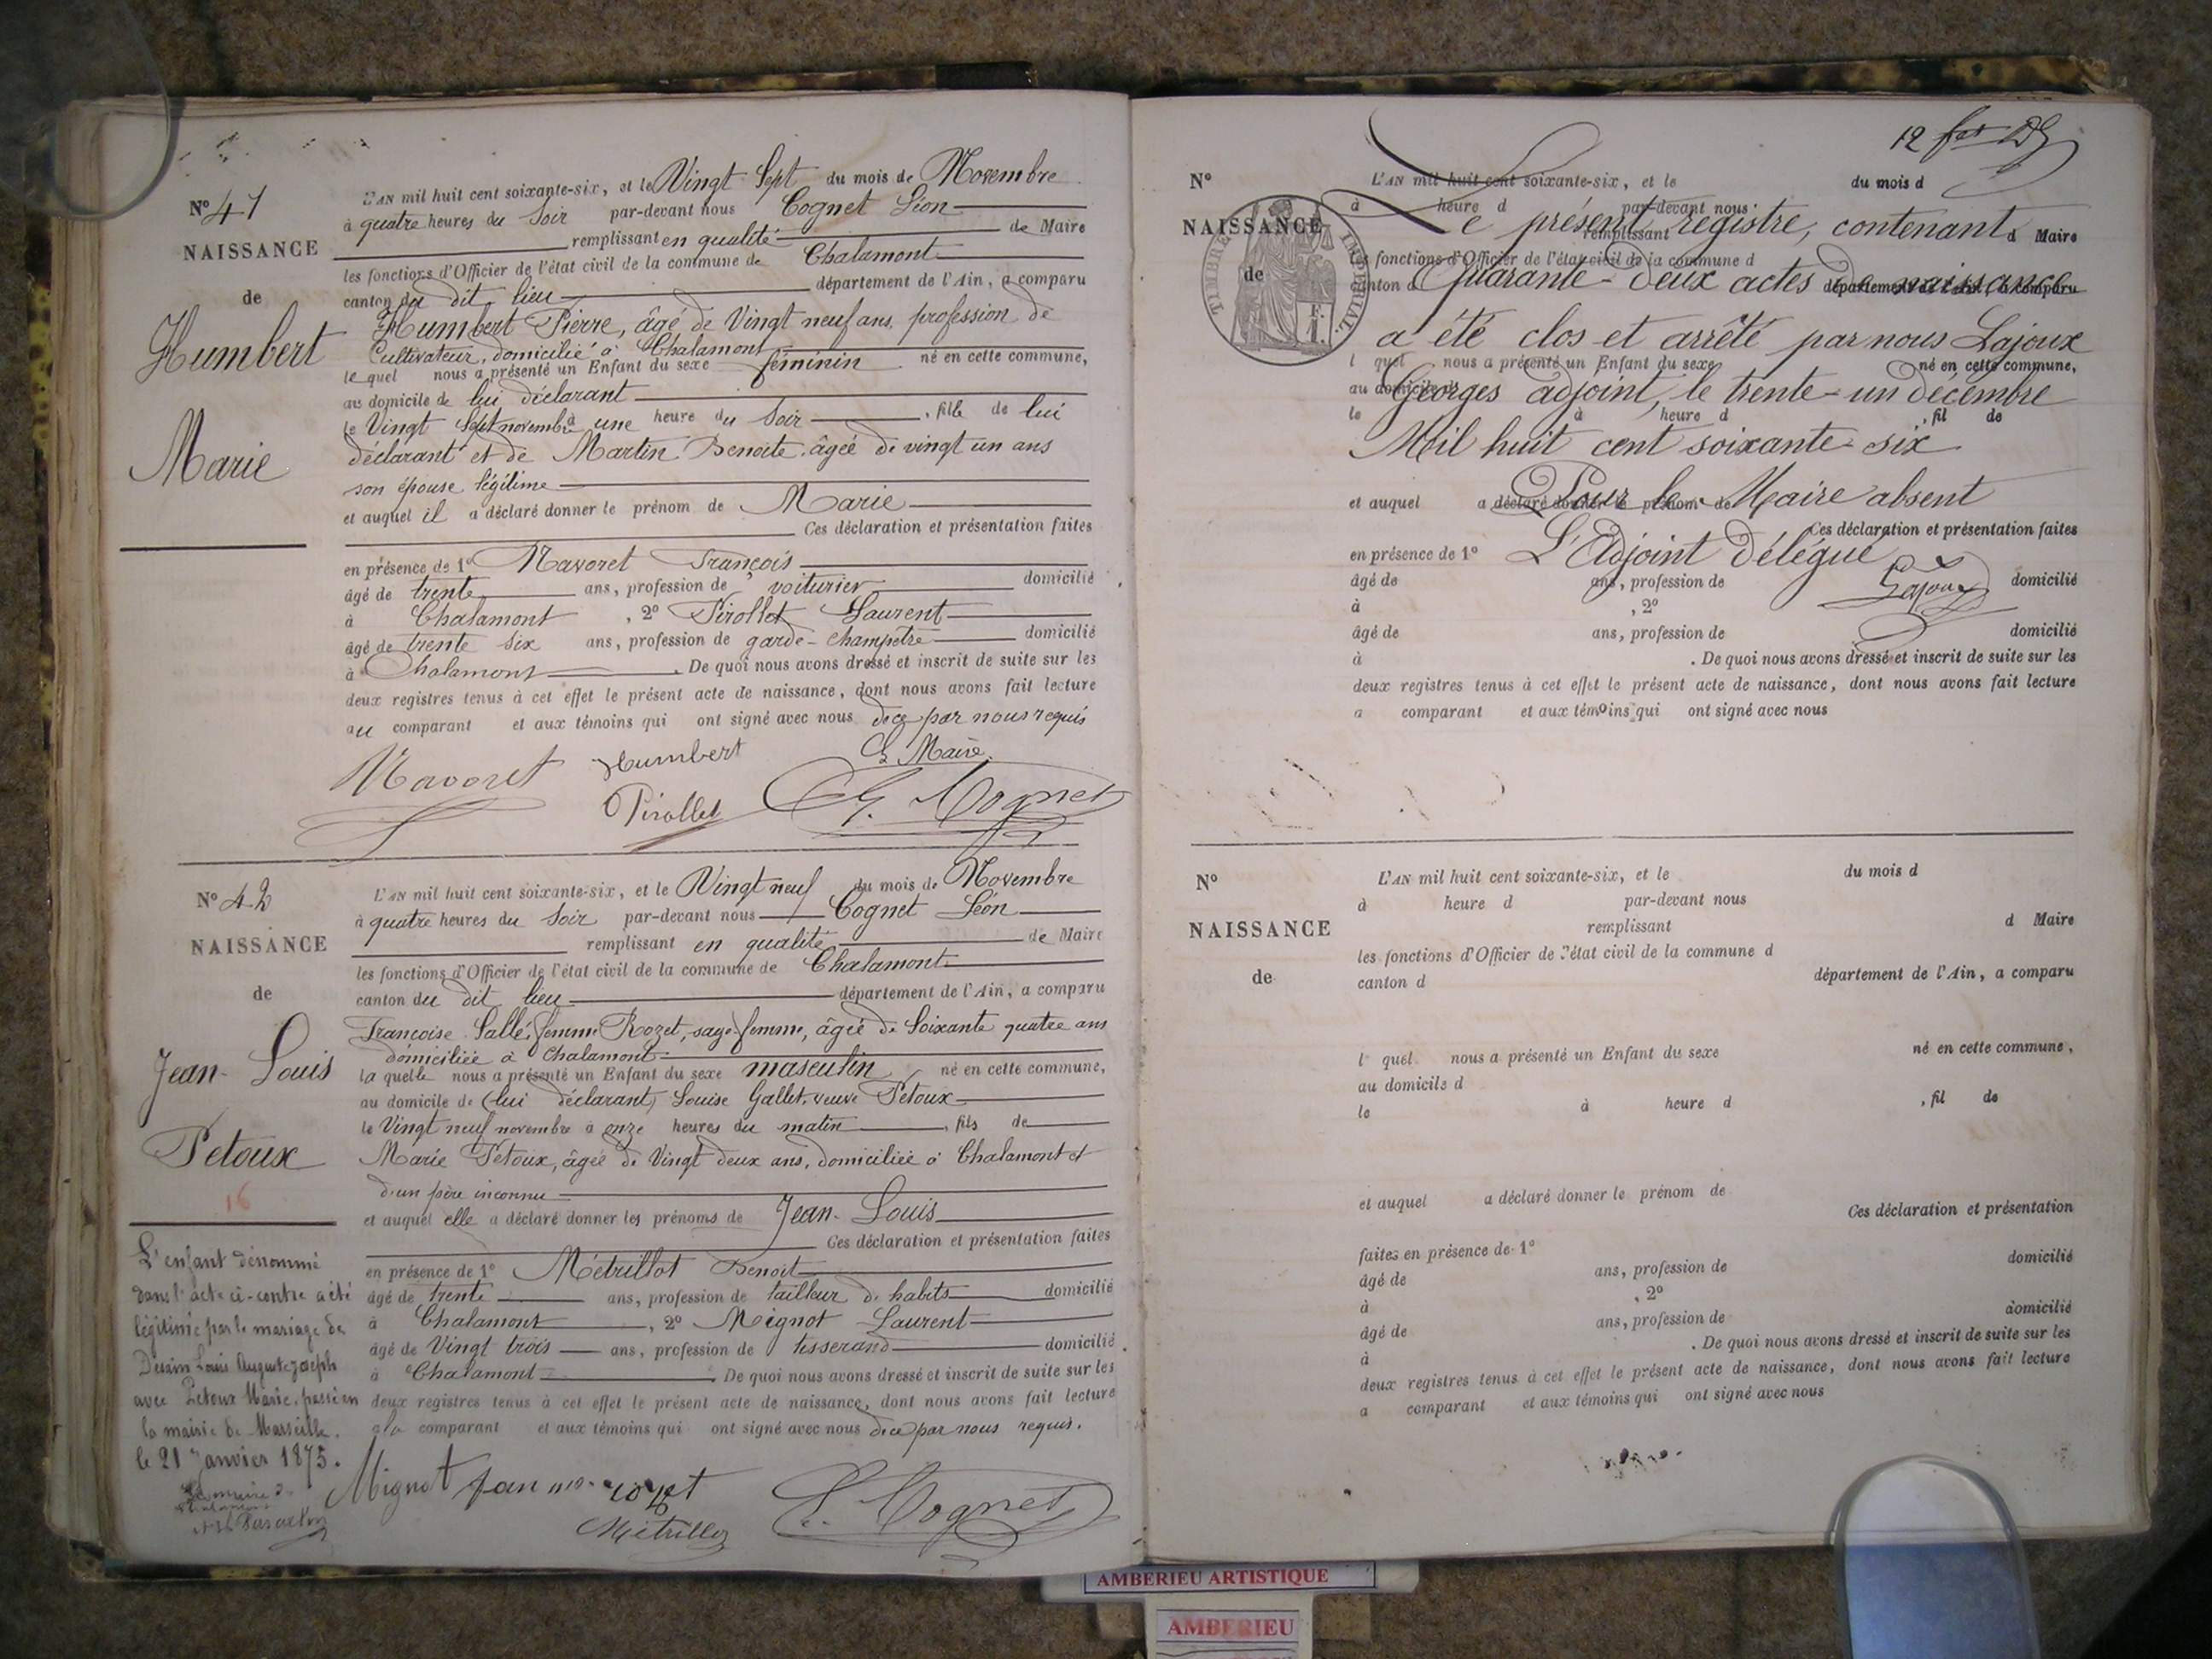 N° 41
NAISSANCE
de
Humbert
Marie
L'AN mil huit cent soixante-six, et le Vingt Sept du mois de Novembre
à quatre heures du Soir par-devant nous Cognet Léon
remplissant en qualité de Maire
les fonctions d'Officier de l'état civil de la commune de Chalamont
canton du dit lieu département de l'Ain, a comparu
Humbert Pierre, âgé de Vingt neuf ans, profession de
Cultivateur, domicilié à Chalamont
le quel nous a présenté un Enfant du sexe féminin né en cette commune,
au domicile de lui déclarant
le Vingt Sept novembre à une heure du Soir, fille de lui
déclarant et de Martin Benoite, âgée de vingt un ans
son épouse légitime
et auquel il a déclaré donner le prénom de Marie
Ces déclaration et présentation faites
en présence de 1° Navoret François
âgé de trente ans, profession de voiturier domicilié
à Chalamont, 2° Pirollet Laurent
âgé de trente six ans, profession de garde-champêtre domicilié
à Chalamont. De quoi nous avons dressé et inscrit de suite sur les
deux registres tenus à cet effet le présent acte de naissance, dont nous avons fait lecture
au comparant et aux témoins qui ont signé avec nous de ce par nous requis
Navoret Humbert Le Maire
Pirollet Cognet
N° 42
NAISSANCE
de
Jean-Louis
Petoux
16
L'AN mil huit cent soixante-six, et le Vingt neuf du mois de Novembre
à quatre heures du Soir par-devant nous Cognet Léon
remplissant en qualité de Maire
les fonctions d'Officier de l'état civil de la commune de Chalamont
canton du dit lieu département de l'Ain, a comparu
Françoise Sallé, femme Rozet, sage femme, âgée de Soixante quatre ans
domiciliée à Chalamont
la quelle nous a présenté un Enfant du sexe masculin né en cette commune,
au domicile de (lui déclarant) Louise Gallet, veuve Petoux
le Vingt neuf novembre à onze heures du matin, fils de
Marie Petoux, âgée de Vingt deux ans, domiciliée à Chalamont et
d'un père inconnu
et auquel elle a déclaré donner les prénoms de Jean-Louis
Ces déclaration et présentation faites
en présence de 1° Métrillot Benoit
âgé de trente ans, profession de tailleur d'habits domicilié
à Chalamont, 2° Mignot Laurent
âgé de Vingt trois ans, profession de tisserand domicilié
à Chalamont. De quoi nous avons dressé et inscrit de suite sur les
deux registres tenus à cet effet le présent acte de naissance, dont nous avons fait lecture
a la comparant et aux témoins qui ont signé avec nous de ce par nous requis.
Mignot
L. Cognet
L'enfant dénommé
dans l'acte ci-contre a été
légitimé par le mariage de
Dessin Louis Auguste Joseph
avec Petoux Marie, passé en
la mairie de Marseille.
le 21 Janvier 1875.
12
N°
NAISSANCE
de
TIMBRE IMPERIAL
L'AN mil huit cent soixante-six, et le du mois d
à heure d par-devant nous
remplissant d Maire
les fonctions d'Officier de l'état civil de la commune d
canton d département de l'Ain, a comparu
Le présent registre, contenant
Quarante-deux actes de naissance
a été clos et arrêté par nous Lajoux
l quel nous a présenté un Enfant du sexe né en cette commune,
au domicile d
Georges adjoint, le trente-un décembre
le à heure d, fil de
Mil huit cent soixante-six
Pour le Maire absent
et auquel a déclaré donner le prénom de
Ces déclaration et présentation faites
L'Adjoint délégué
en présence de 1°
Lajoux
âgé de ans, profession de domicilié
à , 2°
âgé de ans, profession de domicilié
à . De quoi nous avons dressé et inscrit de suite sur les
deux registres tenus à cet effet le présent acte de naissance, dont nous avons fait lecture
a comparant et aux témoins qui ont signé avec nous
N°
NAISSANCE
de
L'AN mil huit cent soixante-six, et le du mois d
à heure d par-devant nous
remplissant d Maire
les fonctions d'Officier de l'état civil de la commune d
canton d département de l'Ain, a comparu
l quel nous a présenté un Enfant du sexe né en cette commune,
au domicile d
le à heure d , fil de
et auquel a déclaré donner le prénom de
Ces déclaration et présentation
faites en présence de 1° domicilié
âgé de ans, profession de
à , 2° domicilié
âgé de ans, profession de
à . De quoi nous avons dressé et inscrit de suite sur les
deux registres tenus à cet effet le présent acte de naissance, dont nous avons fait lecture
a comparant et aux témoins qui ont signé avec nous
AMBERIEU ARTISTIQUE
AMBERIEU